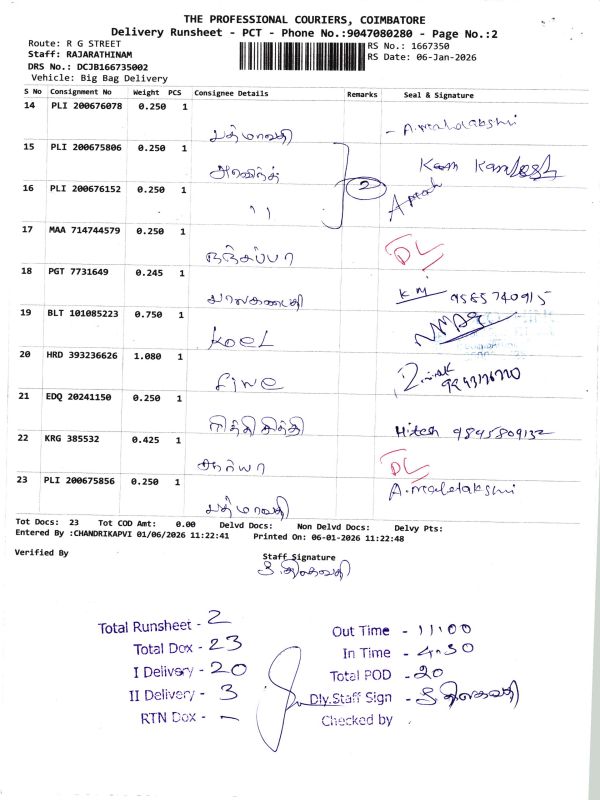 THE PROFESSIONAL COURIERS, COIMBATORE
Delivery Runsheet - PCT - Phone No.:9047080280 - Page No.:2
Route: R G STREET
RS No.: 1667350
Staff: RAJARATHINAM
RS Date: 06-Jan-2026
DRS No.: DCJB166735002
Vehicle: Big Bag Delivery
S No Consignment No Weight PCS Consignee Details Remarks Seal & Signature
14 PLI 200676078 0.250 1
பத்மாவதி - A.mahalakshmi
15 PLI 200675806 0.250 1
அரவிந்த்
16 PLI 200676152 0.250 1 2
,,
17 MAA 714744579 0.250 1
நஞ்சப்பா DL
18 PGT 7731649 0.245 1
பாலகணபதி 9585740915
19 BLT 101085223 0.750 1
KOEL
20 HRD 393236626 1.080 1
Fine
21 EDQ 20241150 0.250 1
Hitesh 9845809132
22 KRG 385532 0.425 1
சூர்யா DL
23 PLI 200675856 0.250 1
பத்மாவதி A.mahalakshmi
Tot Docs: 23 Tot COD Amt: 0.00 Delvd Docs: Non Delvd Docs: Delvy Pts:
Entered By :CHANDRIKAPVI 01/06/2026 11:22:41 Printed On: 06-01-2026 11:22:48
Verified By
Staff Signature
Total Runsheet - 2
Total Dox - 23
I Delivery - 20
II Delivery - 3
RTN Dox - –
Out Time - 11:00
In Time - 4.30
Total POD - 20
Dly.Staff Sign -
Checked by